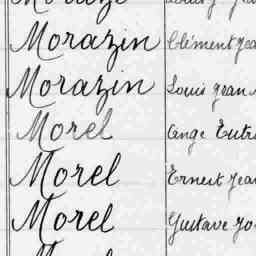 Morazin Clément Jea
Morazin Louis Jean
Morel Ange Eutr
Morel Ernest Jean
Morel Gustave Jo